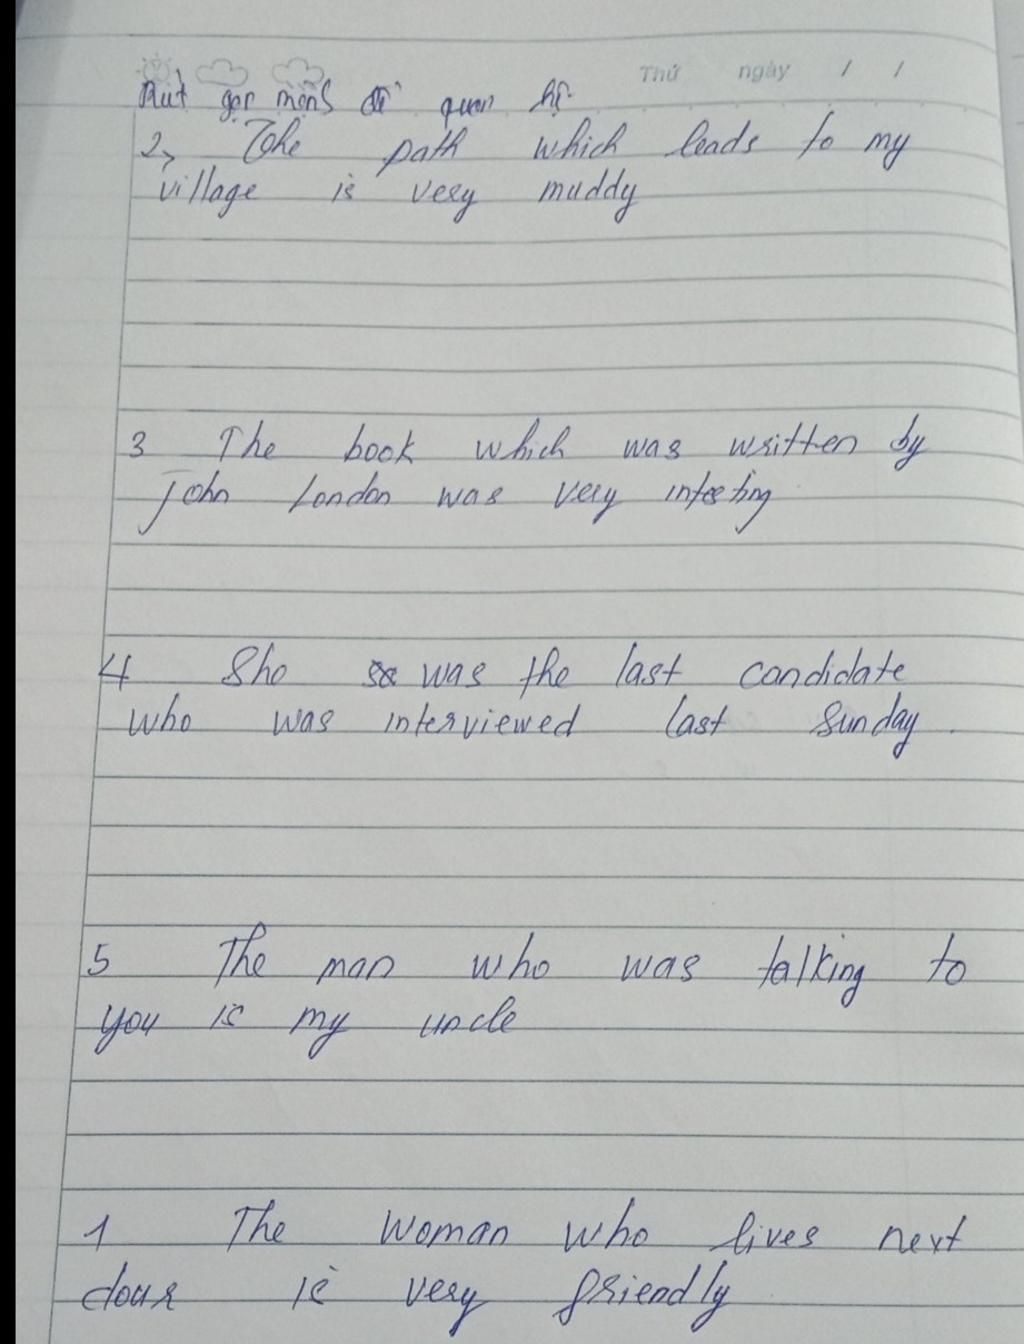 Thứ ngày / /
Rút gọn mệnh đề quan hệ
2, The path which leads to my
village is very muddy
3 The book which was written by
John London was very
4 She was the last candidate
who was interviewed last Sunday.
5 The man who was talking to
you is my uncle
1 The Woman who lives next
is very friendly